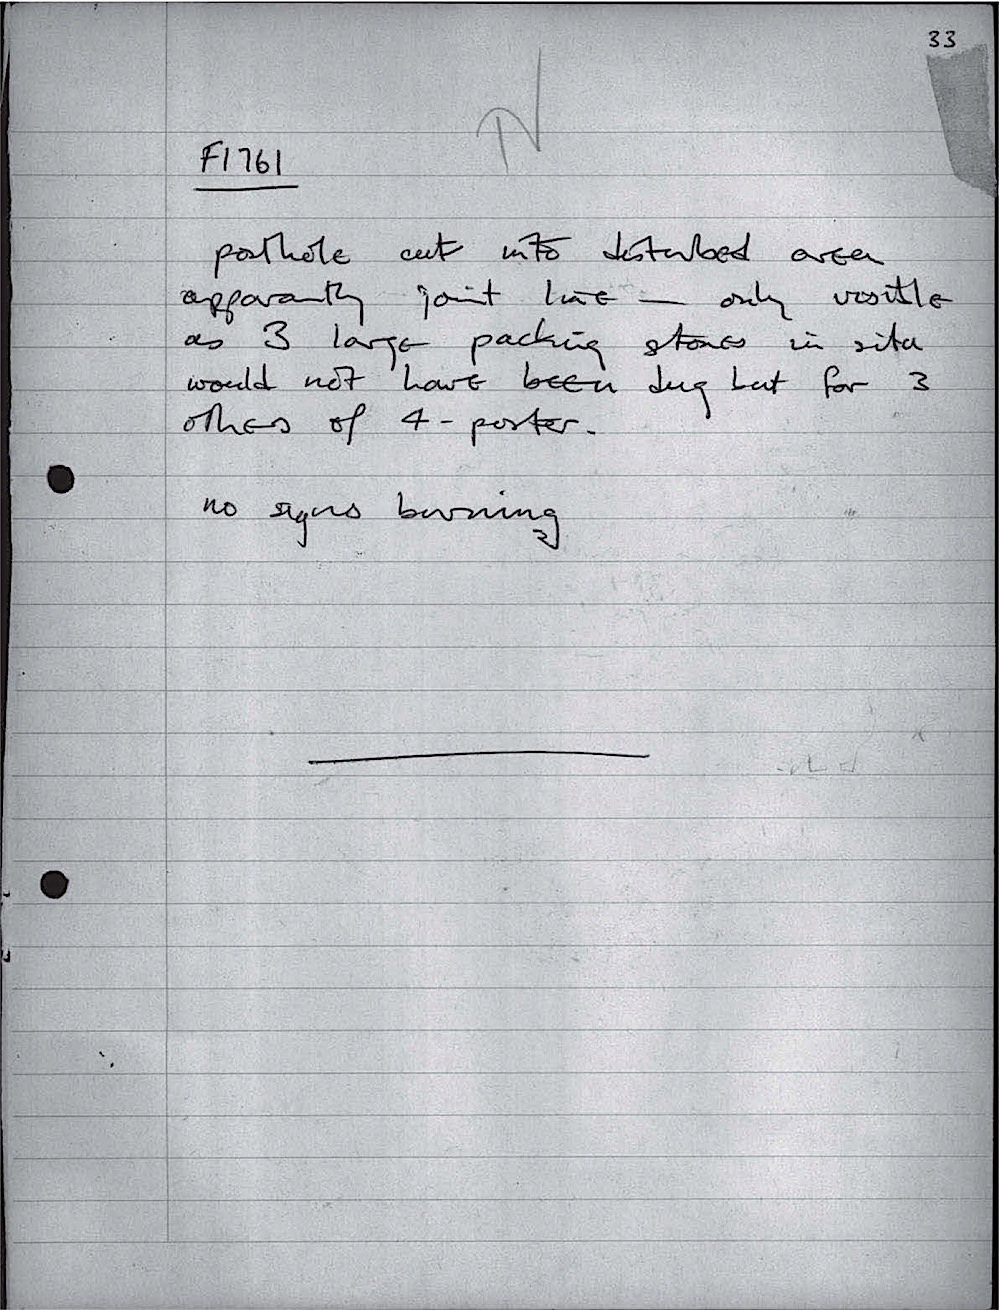 33
F1761
posthole cut into disturbed area
apparantly joint line — only visible
as 3 large packing stones in situ
would not have been dug but for 3
others of 4-poster.
no signs burning